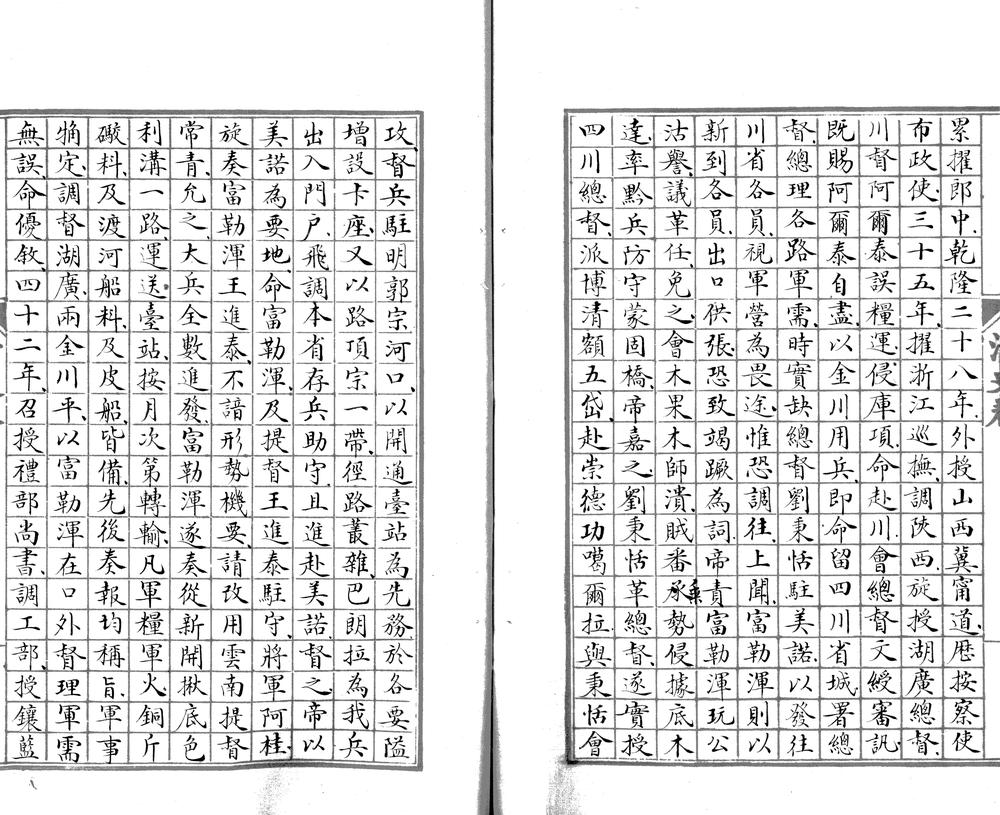 累擢郎中、乾隆二十八年、外授山西冀甯道、歷按察使
布政使、三十五年、擢浙江巡撫、調陝西、旋授湖廣總督、
川督阿爾泰誤糧運、侵庫項、命赴川、會總督文綬審訊、
既賜阿爾泰自盡、以金川用兵、即命留四川省城署總
督、總理各路軍需、時實缺總督劉秉恬駐美諾、以發往
川省各員、視軍營為畏途、惟恐調往、上聞、富勒渾則以
新到各員、出口供張、恐致竭蹶為詞、帝責富勒渾玩公
沽譽、議革任、免之、會木果木師潰、賊番乘勢侵據底木
達、率黔兵防守蒙固橋、帝嘉之、劉秉恬革總督、遂實授
四川總督、派博清額五岱、赴崇德功噶爾拉、與秉恬會
攻、督兵駐明郭宗河口、以開通臺站為先務、於各要隘
增設卡座、又以路頂宗一帶、徑路叢雜、巴朗拉為我兵
出入門戶、飛調本省存兵助守、且進赴美諾、督之、帝以
美諾為要地、命富勒渾、及提督王進泰駐守、將軍阿桂、
旋奏富勒渾王進泰、不諳形勢機要、請改用雲南提督
常青、允之、大兵全數進發、富勒渾遂奏從新開楸底色
利溝一路、運送臺站、按月次第轉輸、凡軍糧軍火、銅斤
礮料、及渡河船料、及皮船、皆備、先後奏報均稱旨、軍事
牖定、調督湖廣、兩金川平、以富勒渾在口外督理軍需
無誤、命優敘、四十二年、召授禮部尚書、調工部、授鑲藍